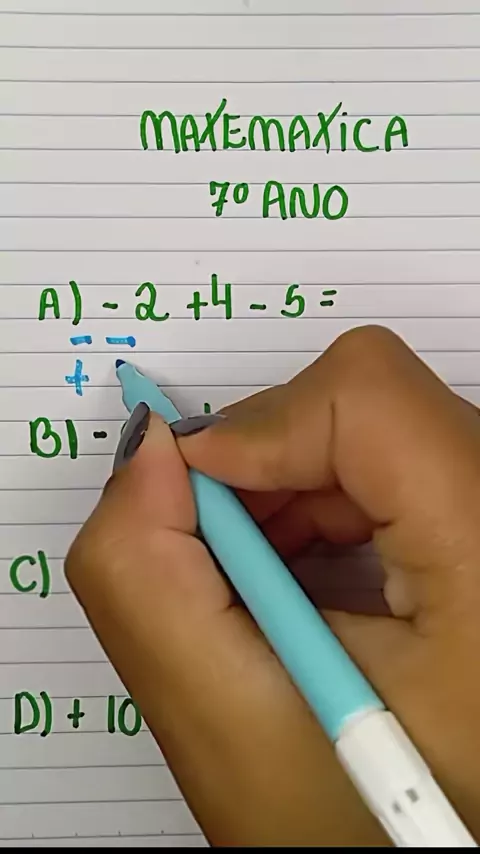 MATEMATICA
7º ANO
A) - 2 + 4 - 5 =
- -
+
B) -
C)
D) + 10